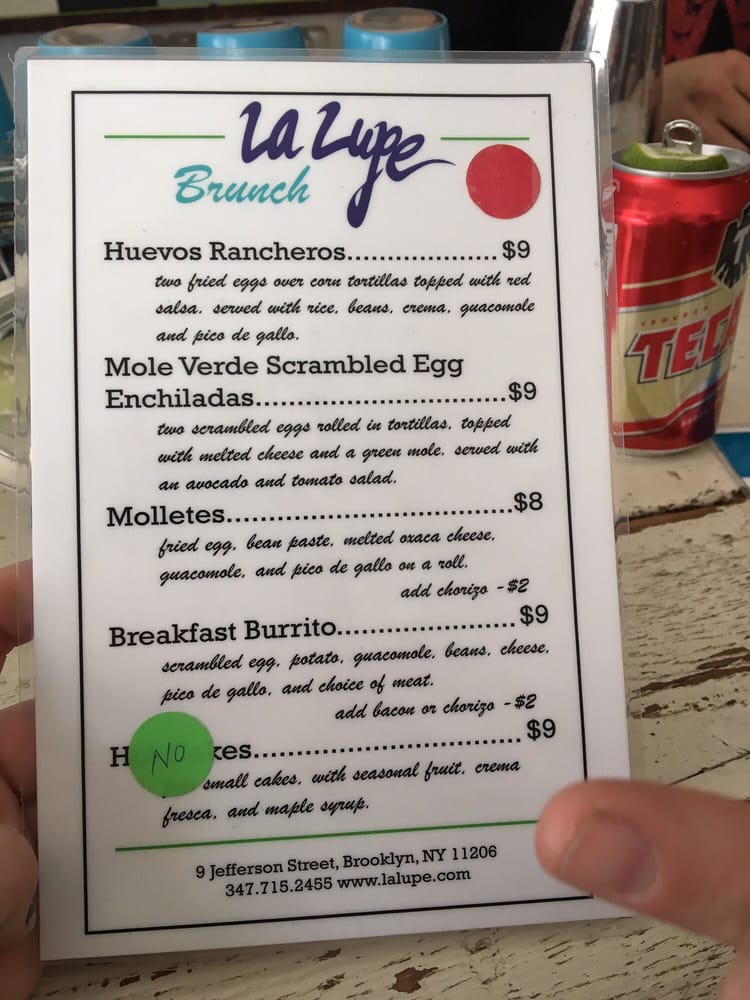 La Lupe
Brunch
Huevos Rancheros...................$9
two fried eggs over corn tortillas topped with red
salsa. served with rice, beans, crema, guacomole
and pico de gallo.
Mole Verde Scrambled Egg
Enchiladas................................$9
two scrambled eggs rolled in tortillas, topped
with melted cheese and a green mole. served with
an avocado and tomato salad.
Molletes.....................................$8
fried egg, bean paste, melted oxaca cheese,
guacomole, and pico de gallo on a roll.
add chorizo - $2
Breakfast Burrito.......................$9
scrambled egg, potato, guacomole, beans, cheese,
pico de gallo, and choice of meat.
add bacon or chorizo - $2
NO
$9
small cakes, with seasonal fruit, crema
fresca, and maple syrup.
9 Jefferson Street, Brooklyn, NY 11206
347.715.2455 www.lalupe.com
CERVEZA